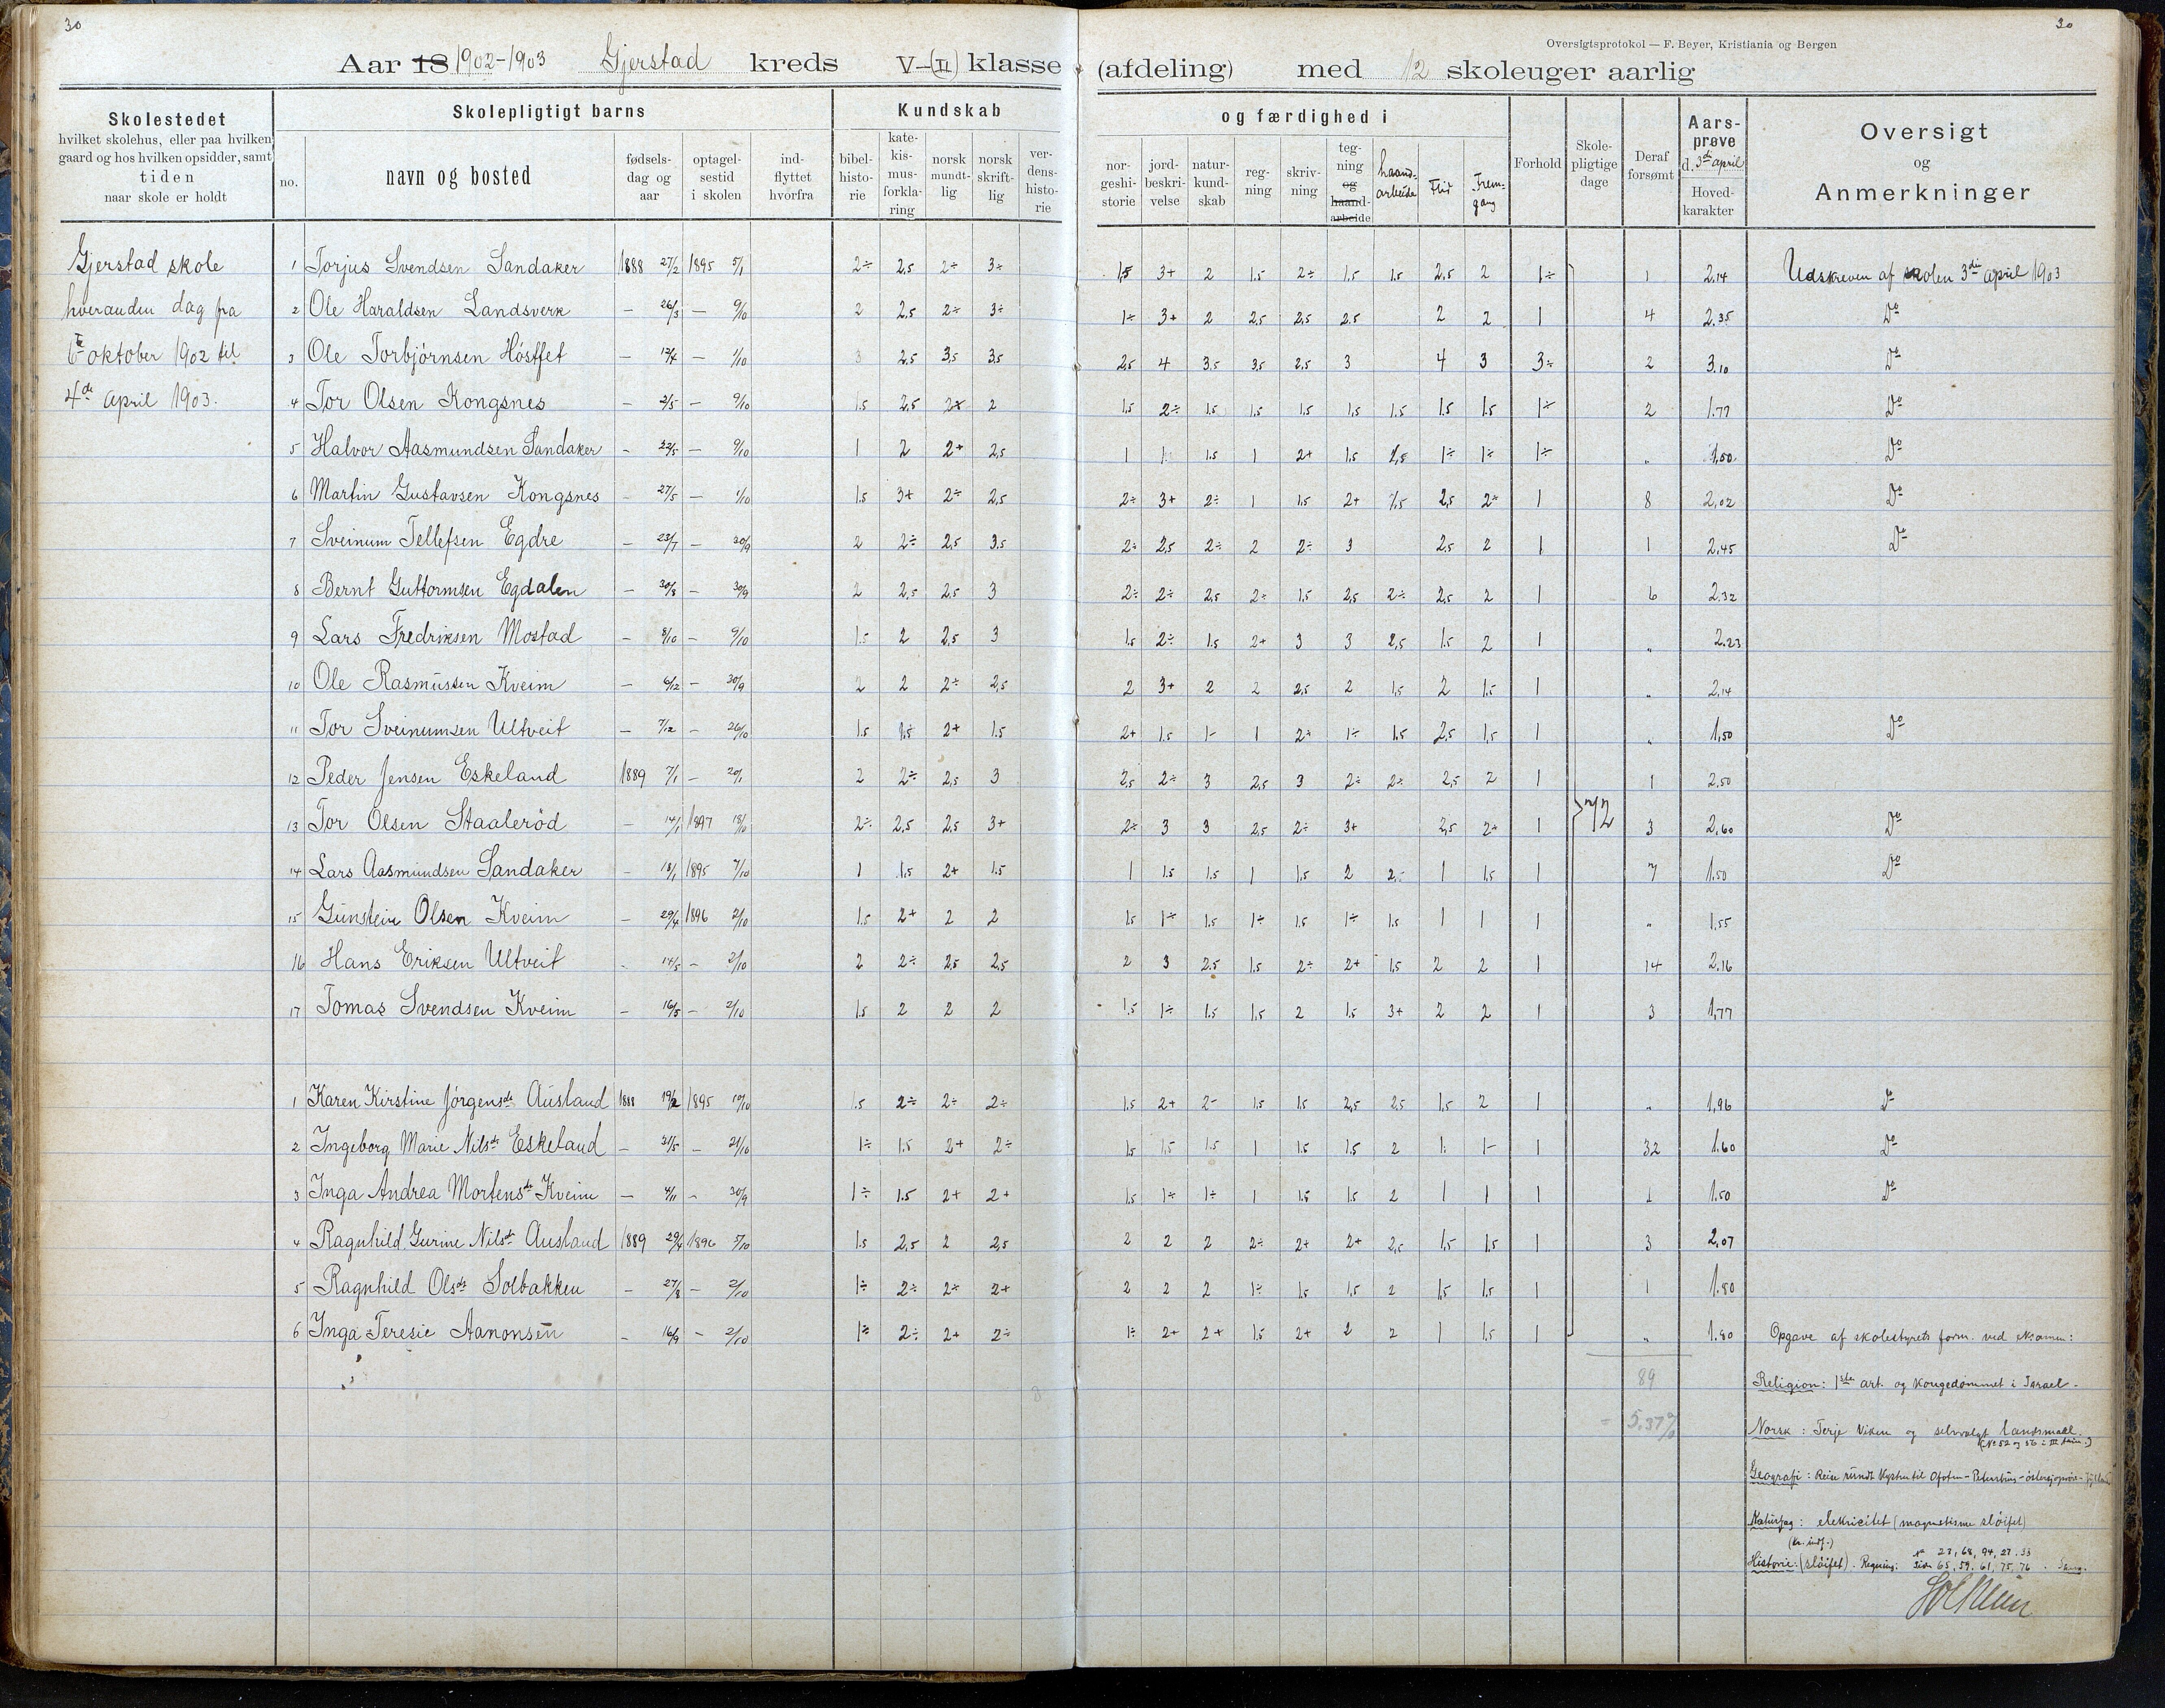 30
30
Oversigtsprotokol — F. Beyer, Kristiania og Bergen
Aar 18 1902-1903 Gjerstad kreds V-(II) klasse (afdeling) med 12 skoleuger aarlig
Skolestedet
hvilket skolehus, eller paa hvilken
gaard og hos hvilken opsidder, samt
tiden
naar skole er holdt
Skolepligtigt barns
no.
navn og bosted
fødsels-
dag og
aar
optagel-
sestid
i skolen
ind-
flyttet
hvorfra
Kundskab
bibel-
histo-
rie
kate-
kis-
mus-
forkla-
ring
norsk
mundt-
lig
norsk
skrift-
lig
ver-
dens-
histo-
rie
og færdighed i
nor-
geshi-
storie
jord-
beskri-
velse
natur-
kund-
skab
reg-
ning
skriv-
ning
teg-
ning
og
haand-
arbeide
haand-
arbeide
Flid
Frem-
gang
Forhold
Skole-
pligtige
dage
Deraf
forsømt
Aars-
prøve
d. 3di april
Hoved-
karakter
Oversigt
og
Anmerkninger
Gjerstad skole
hveranden dag fra
6te oktober 1902 til
4de april 1903.
1 Torjus Svendsen Sandaker 1888 27/2 1895 5/1 2÷ 2,5 2÷ 3÷ 1,5 3+ 2 1.5 2÷ 1.5 1.5 2,5 2 1÷ 1 2,14 Udskreven af skolen 3die april 1903
2 Ole Haraldsen Landsverk — 26/3 — 9/10 2 2,5 2÷ 3÷ 1÷ 3+ 2 2,5 2,5 2,5 2 2 1 4 2.35 Do
3 Ole Torbjörnsen Hösffet — — 1/10 3 2.5 3,5 3,5 2,5 4 3.5 3,5 2.5 3 4 3 3÷ 2 3.10 Do
4 Tor Olsen Kongsnes — 2/5 — 9/10 1.5 2,5 2 1,5 2÷ 1.5 1.5 1.5 1,5 1.5 1.5 1.5 1÷ 2 1.77 Do
5 Halvor Aasmundsen Sandaker - 22/5 — 9/10 1 2 2+ 2,5 1 1 1.5 1 2+ 1.5 2,5 1÷ 1÷ 1÷ „ 1,50 Do
6 Martin Gustavsen Kongsnes - 27/5 — 1.5 3+ 2÷ 2,5 2÷ 3+ 2÷ 1 1.5 2+ 1.5 2,5 2+ 1 8 2,02 Do
7 Sveinum Tellefsen Egdre — 23/7 — 30/9 2 2÷ 2,5 3.5 2÷ 2,5 2÷ 2 2÷ 3 2.5 2 1 1 2,45 Do
8 Bernt Guttormsen Egdalen — 30/8 — 30/9 2 2,5 2,5 3 2÷ 2÷ 2,5 2÷ 1.5 2,5 2÷ 2,5 2 1 6 2.32
9 Lars Fredriksen Mostad — 8/10 — 9/10 1.5 2 2,5 3 1.5 2÷ 1.5 2+ 3 3 2,5 1.5 2 1 „ 2.23
10 Ole Rasmussen Kveim — 6/12 — 30/9 2 2 2÷ 2,5 2 3+ 2 2 2,5 2 1,5 2 1.5 1 „ 2.14
11 Tor Sveinumsen Ultveit — 7/12 — 26/10 1.5 1,5 2+ 1.5 2+ 1.5 1- 1 2+ 1÷ 1.5 2,5 1,5 1 „ 1,50 Do
12 Peder Jensen Eskeland 1889 7/1 — 20/1 2 2÷ 2,5 3 2,5 2÷ 3 2,5 3 2÷ 2÷ 2,5 2 1 1 2,50
13 Tor Olsen Staaleröd — 14/1 1897 18/10 2÷ 2,5 2,5 3+ 2÷ 3 3 2,5 2÷ 3+ 2,5 2+ 1 72 3 2,60 Do
14 Lars Aasmundsen Sandaker — 18/1 1895 7/10 1 1,5 2+ 1.5 1 1.5 1.5 1 1,5 2 2÷ 1 1,5 1 7 1.50 Do
15 Gunstein Olsen Kveim — 29/4 1896 2/10 1.5 2+ 2 2 1.5 1÷ 1.5 1÷ 1.5 1÷ 1.5 1 1 1 „ 1,55
16 Hans Eriksen Ultveit - 14/5 — 2/10 2 2÷ 2,5 2,5 2 3 2.5 1.5 2÷ 2+ 1,5 2 2 1 14 2.16
17 Tomas Svendsen Kveim — 16/5 — 2/10 1.5 2 2 2 1,5 1÷ 1.5 1.5 2 1.5 3+ 2 2 1 3 1,77
1 Karen Kirstine Jörgensdr Ausland 1888 19/2 1895 10/10 1.5 2÷ 2÷ 2÷ 1.5 2+ 2- 1.5 1.5 2,5 2,5 1,5 2 1 „ 1,96 Do
2 Ingeborg Marie Nilsdr Eskeland — 31/5 — 21/10 1÷ 1.5 2+ 2÷ 1.5 1,5 1.5 1 1.5 1.5 2 1. 1- 1 32 1.60 Do
3 Inga Andrea Mortensdr Kveim — 4/11 — 30/9 1÷ 1.5 2+ 2+ 1.5 1÷ 1÷ 1 1.5 1.5 2 1 1 1 1 1.50 Do
4 Ragnhild Gurine Nilsdr Ausland 1889 29/4 1896 5/10 1.5 2,5 2 2,5 2 2 2 2÷ 2+ 2+ 2,5 1,5 1,5 1 3 2,07
5 Ragnhild Olsdr Solbakken — 27/8 — 2/10 1÷ 2÷ 2÷ 2+ 2 2 2 1÷ 1.5 1,5 2 1,5 1,5 1 1 1.80
6 Inga Teresie Aanonsen — 16/9 — 2/10 1÷ 2÷ 2+ 2÷ 1÷ 2+ 2+ 1.5 2+ 2 2 1 1,5 1 „ 1.80
89
= 5.37%
Opgave af skolestyrets form. ved eksamen:
Religion: 1ste art. og Kongedømmet i Israel.
Norsk: Terje Viken og selvvalgt landsmaal.
(No 52 og 56 i III )
Geografi: Reise rundt Kysten til Ofoten - Petersburg -
Naturfag: elekricitet (magnetisme slöifet)
Historie: (slöifet). Regning: No 23, 68, 94, 27. 33
Side 65, 59, 61, 75, 76.